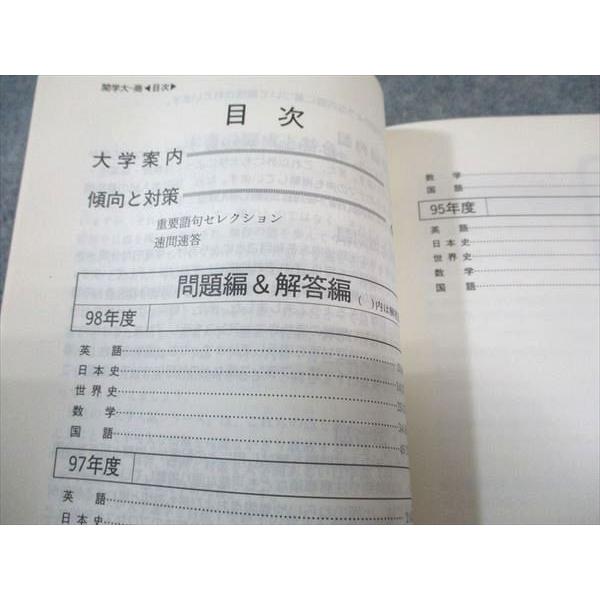 関学大-商◀目次▶
目次
大学案内
傾向と対策
重要語句セレクション
速問速答
問題編&解答編
( )内は解答
98年度
英語
日本史
世界史
数学
国語
97年度
英語
日本史
数学
国語
95年度
英語
日本史
世界史
数学
国語